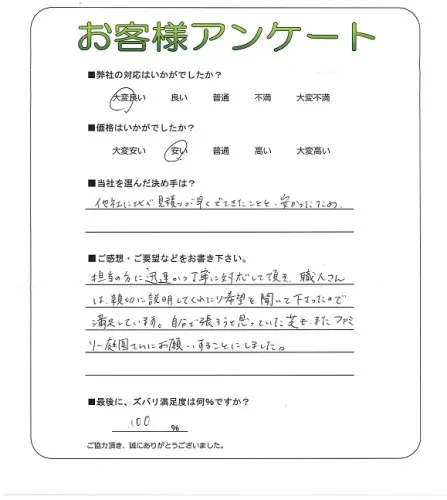 お客様アンケート
■弊社の対応はいかがでしたか？
大変良い 良い 普通 不満 大変不満
■価格はいかがでしたか？
大変安い 安い 普通 高い 大変高い
■当社を選んだ決め手は？
他社に比べ見積りが早くでてきたことと、安かったため。
■ご感想・ご要望などをお書き下さい。
担当の方に迅速かつ丁寧に対応して頂き、職人さん
は、親切に説明してくれたり希望を聞いて下さったので
満足しています。自分で張ろうと思っていた芝も、またファミ
リー庭園さんにお願いすることにしました。
■最後に、ズバリ満足度は何%ですか？
100 %
ご協力頂き、誠にありがとうございました。